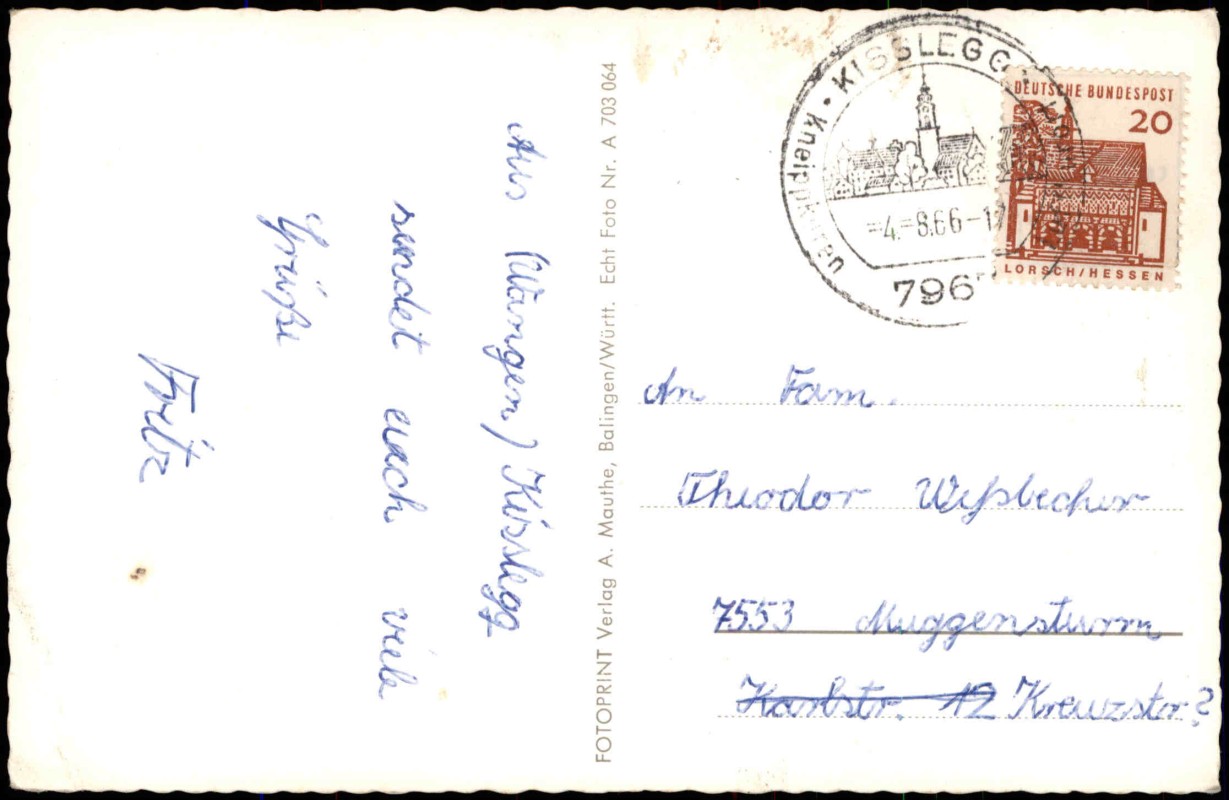 Aus (Wangen) Kisslegg
sendet euch viele
Grüße
Fritz
FOTOPRINT Verlag A. Mauthe, Balingen/Württ. Echt Foto Nr. A 703 064
KISSLEGG
Kneipkur
-4.-8.66-17
796
DEUTSCHE BUNDESPOST
20
LORSCH/HESSEN
An Fam.
Theodor
7553 Muggensturm
Karlstr. 12 Kreuzstr?